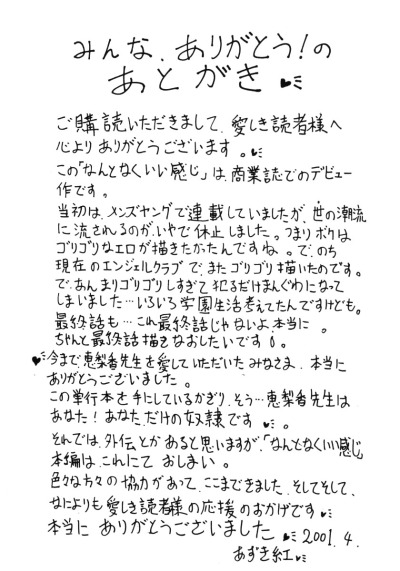 みんな、ありがとう!の
あとがき
ご購読いただきまして、愛しき読者様へ
心よりありがとうございます。
この「なんとなくいい感じ」は、商業誌でのデビュー
作です。
当初は、メンズヤングで連載していましたが、世の潮流
に流されるのがいやで休止しました。つまりボクは
ゴリゴリなエロが描きたかったんですね。で、のち
現在のエンジェルクラブで、またゴリゴリ描いたのです。
で、あんまりゴリゴリしすぎて犯るだけまんがになって
しまいました…いろいろ学園生活考えてたんですけども。
最終話も…これ最終話じゃないよ、本当に。
ちゃんと最終話描きなおしたいです。
今まで、恵梨香先生を愛していただいたみなさま、本当に
ありがとうございました。
この単行本を手にしているかぎり、そう…恵梨香先生は
あなた!あなただけの奴隷です。
それでは、外伝とかあると思いますが、「なんとなくいい感じ
本編は、これにておしまい。
色々な方々の協力があって、ここまできました、そしてそして、
なによりも愛しき読者様の応援のおかげです
本当にありがとうございました 2001.4.
あずき紅